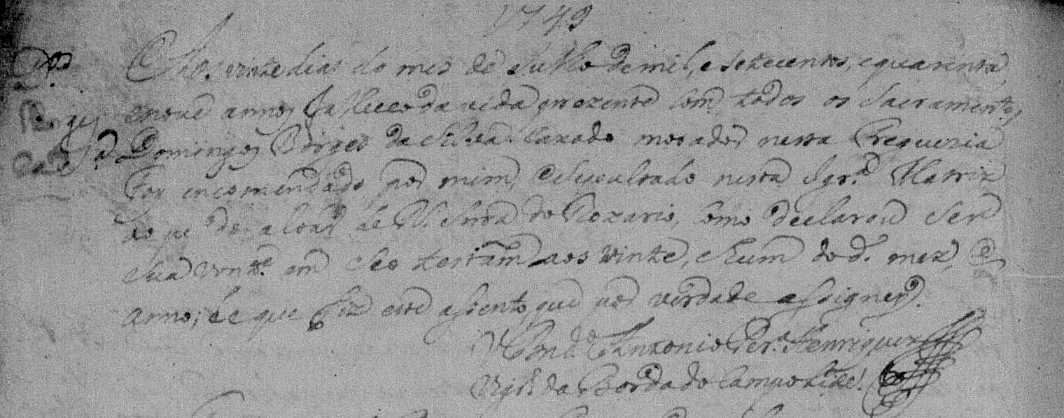 1749
Aos vinte dias do mes de Julho de mil, e setecentos, e quarenta
e nove annos falleceo da vida prezente com todos os Sacramentos
Domingos Borges da Costa cazado morador nesta Freguezia
Foi encomendado por mim, e sepultado nesta Igrª Matriz
ao pé do altar de N. Snra do Rozario, como declarou ser
sua vontᵉ em seo testamᵗᵒ aos vinte, e hum do dº mez, e
anno; de que fiz este assento, que por verdade assigney.
Antonio Perª Henriques
Vigrº da Borda do Campo